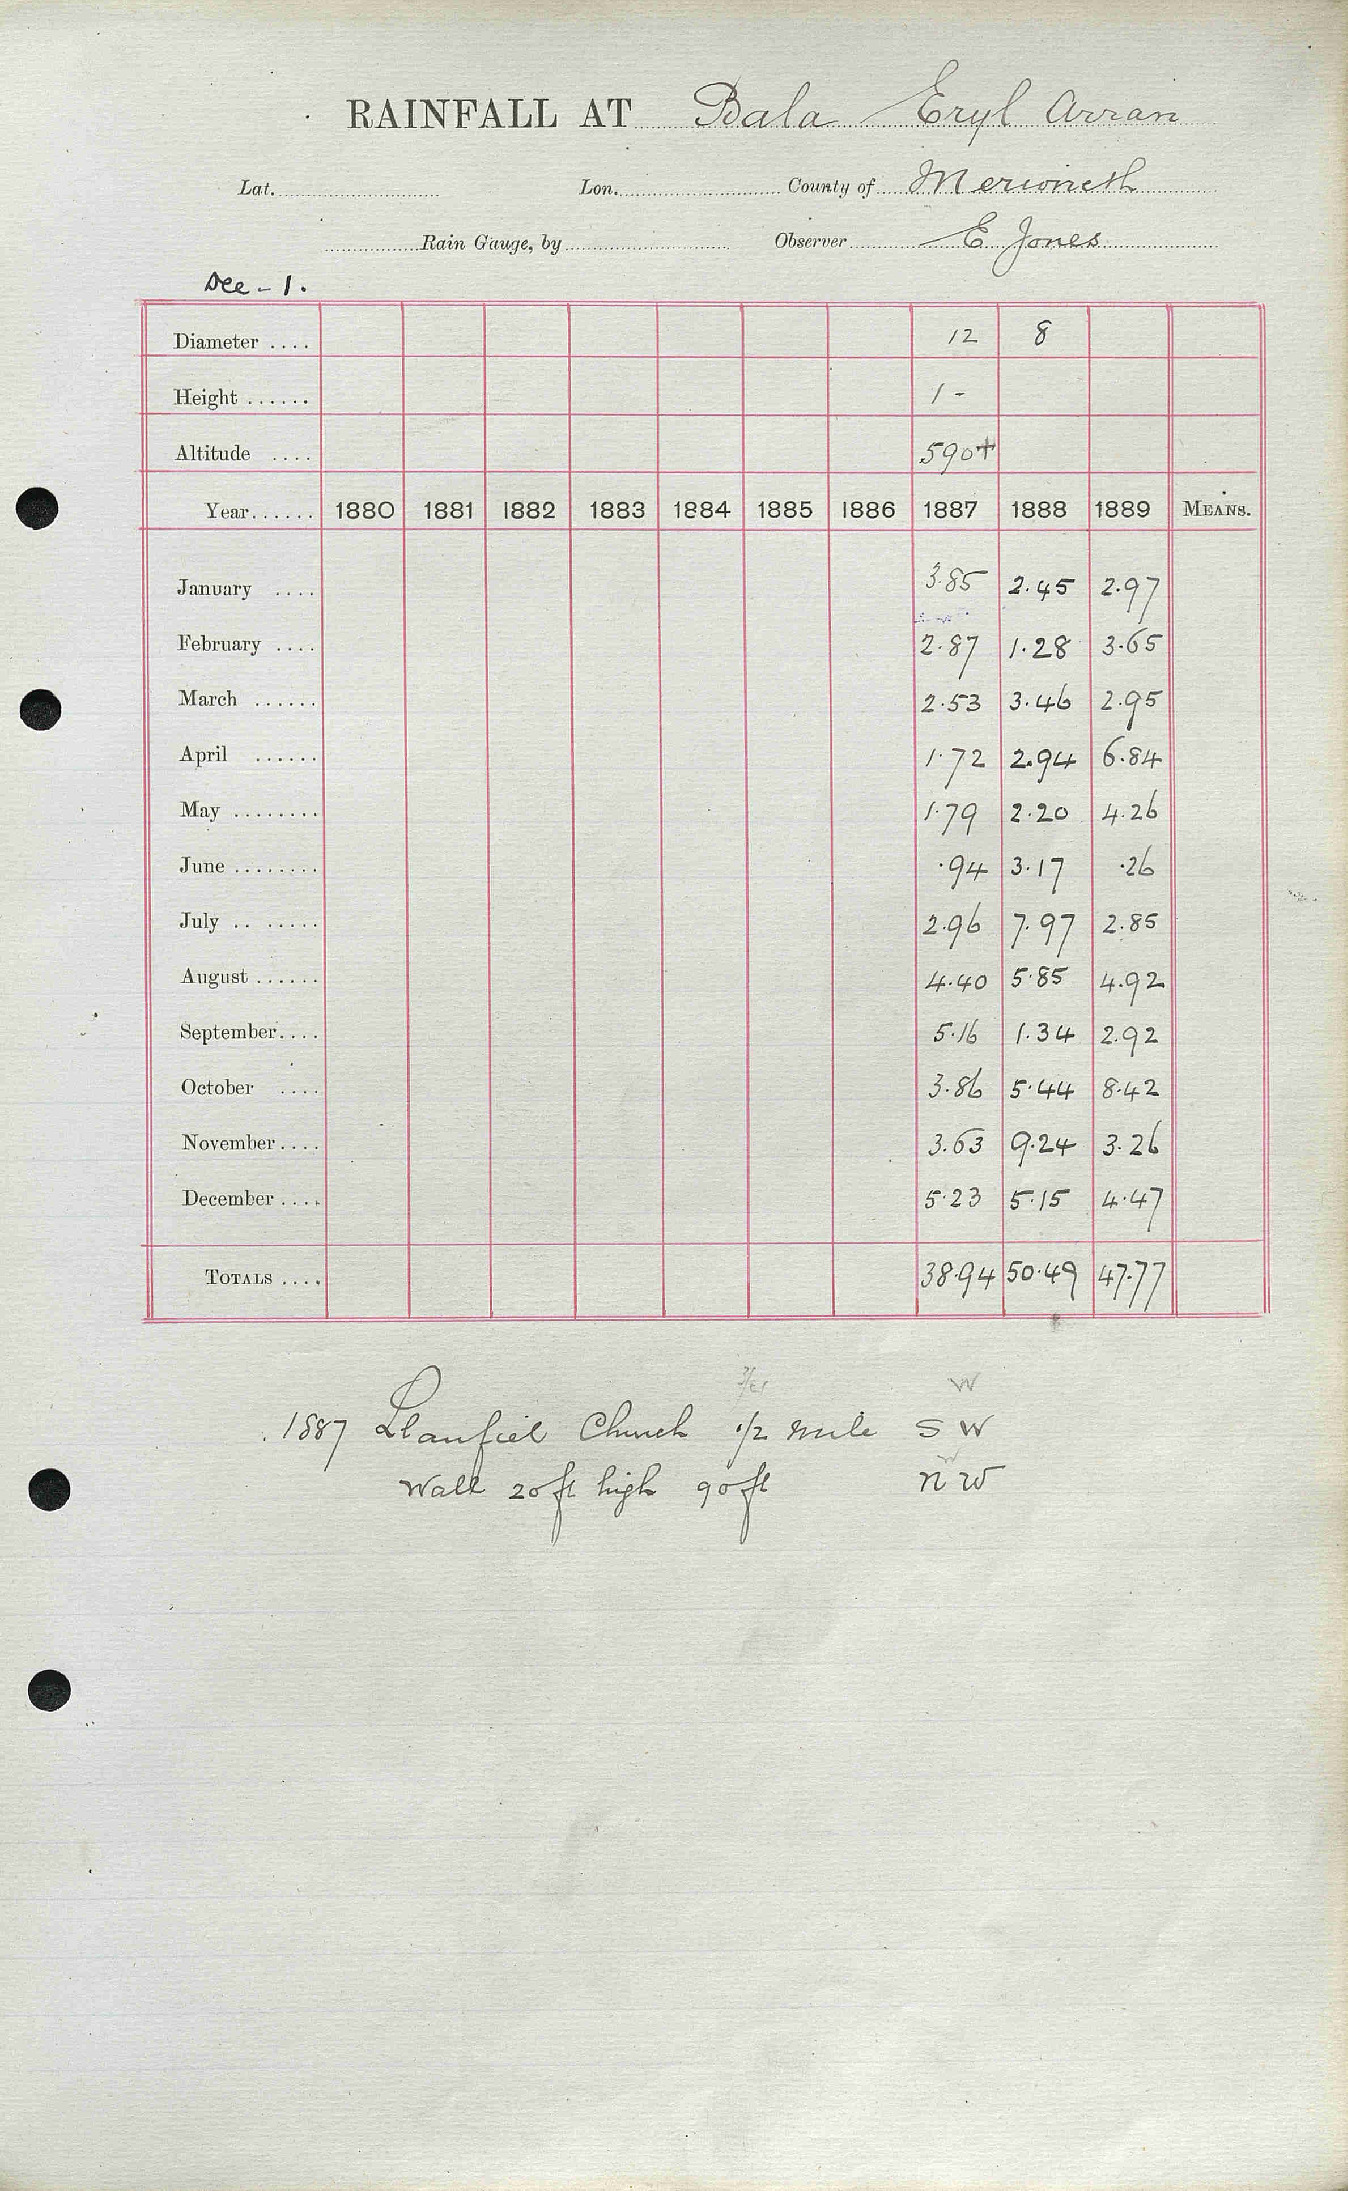 RAINFALL AT Bala Eryl Arran
Lat. Lon. County of Merioneth
Rain Gauge, by Observer E Jones
Dee - 1.
Diameter .... 12 8
Height ...... 1 -
Altitude .... 590+
Year...... 1880 1881 1882 1883 1884 1885 1886 1887 1888 1889 MEANS.
January .... 3.85 2.45 2.97
February .... 2.87 1.28 3.65
March ...... 2.53 3.46 2.95
April ...... 1.72 2.94 6.84
May ........ 1.79 2.20 4.26
June ........ .94 3.17 .26
July .. ...... 2.96 7.97 2.85
August ...... 4.40 5.85 4.92
September.... 5.16 1.34 2.92
October .... 3.86 5.44 8.42
November.... 3.63 9.24 3.26
December .... 5.23 5.15 4.47
TOTALS .... 38.94 50.49 47.77
W
1887 Llanfiel Church 1/2 mile S W
Wall 20 ft high 90 ft n W